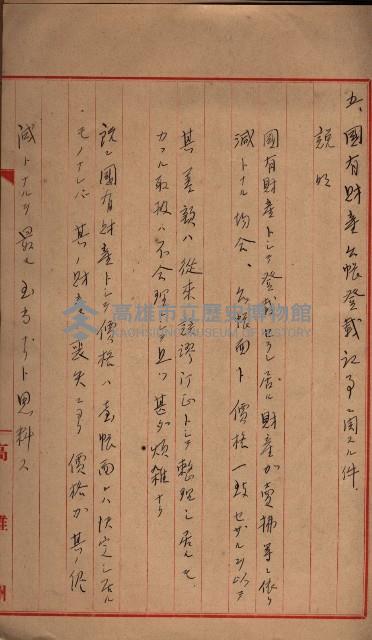 五、國有財産台帳登載記事ニ関スル件
説明
國有財産トシテ登載セラレ居ル財産カ賣拂等ニ依リ
減トナル場合、台帳面ト價格一致セザルヲ以テ
其ノ差額ハ從来誤謬訂正トシテ整理シ居ルモ
カカル取扱ハ不合理ニシテ且ツ甚ダ煩雑ナリ
說ニ國有財産トシテ價格ハ台帳面ハ決定シ居ル
モノナレバ其ノ財産喪失ニヨリ價格カ其ノ儘
減トナルヲ最モ至当ナリト思料ス
高雄州
高雄市立歷史博物館
KAOHSIUNG MUSEUM OF HISTORY